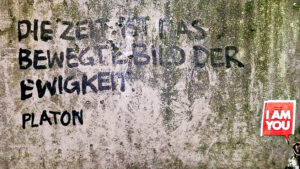 DIE ZEIT IST DAS
BEWEGTE BILD DER
EWIGKEIT.
PLATON
I AM
YOU